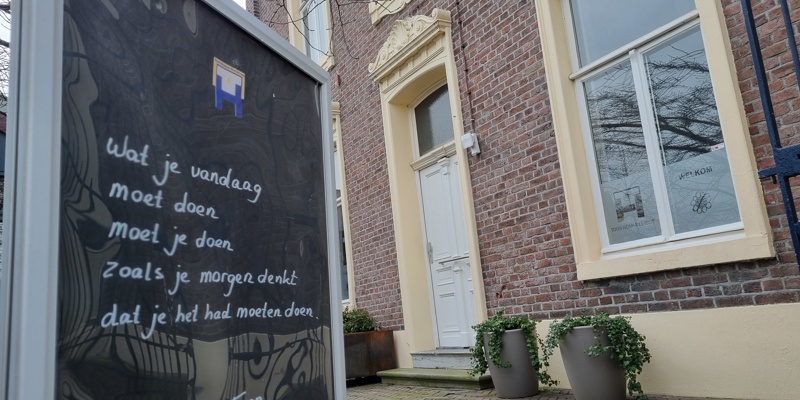 Wat je vandaag
moet doen
moet je doen
zoals je morgen denkt
dat je het had moeten doen.
WELKOM